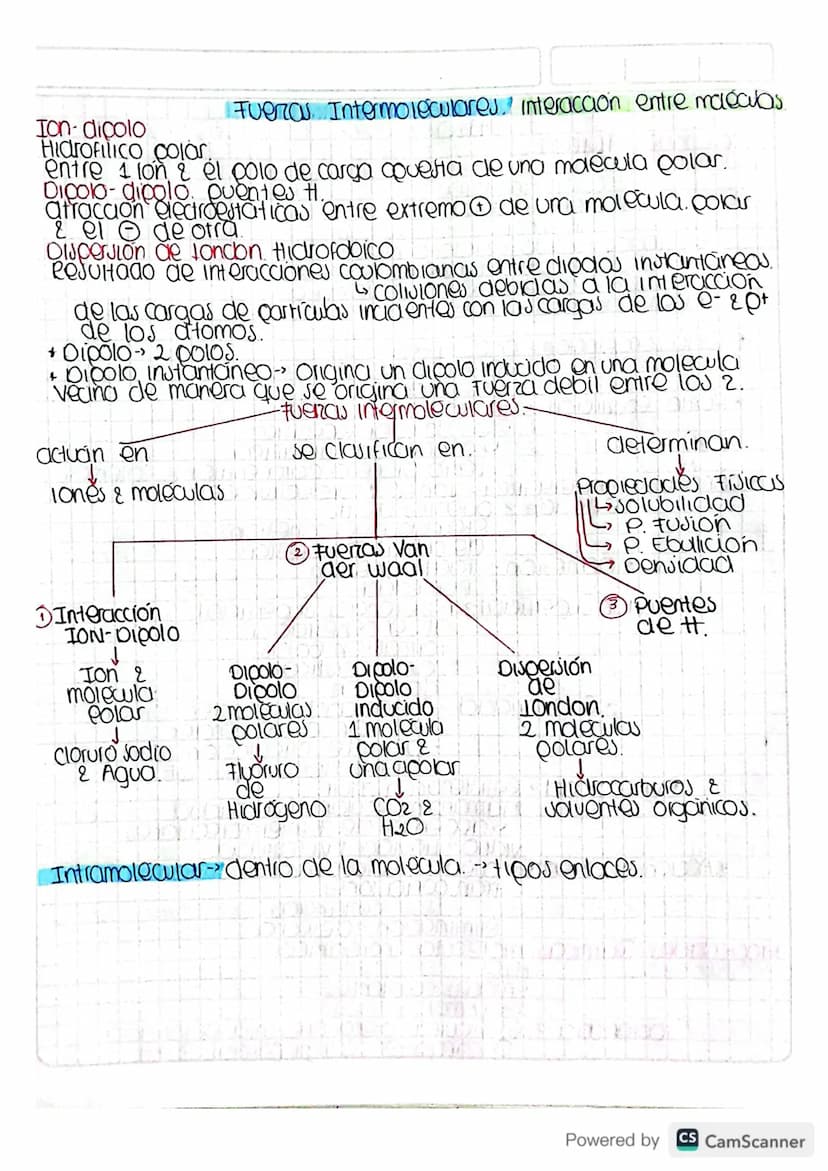 Fuerzas Intermoleculares: interacción entre moléculas
Ion-dipolo
Hidrofílico polar.
entre 1 ión & el polo de carga opuesta de una molécula polar.
Dipolo-dipolo. puentes H.
atracción electroestáticas entre extremo ⊕ de una molécula polar
& el ⊖ de otra.
Dispersión de London. Hidrofóbico
Resultado de interacciones coulombianas entre dipolos instantáneos.
↳ colisiones debidas a la interacción
de las cargas de partículas incidentes con las cargas de los e- & p+
de los átomos.
* Dipolo → 2 polos.
* Dipolo instantáneo → origina un dipolo inducido en una molécula
vecina de manera que se origina una fuerza debil entre las 2.
fuerzas intermoleculares.
actúan en
se clasifican en.
determinan.
iones & moléculas
Propiedades Físicas
↳ solubilidad
↳ P. Fusión
↳ P. Ebullición
↳ Densidad
② Fuerzas Van
der waal
① Interacción
ION-Dipolo
③ Puentes
de H.
Ion &
molécula
Polar
↓
cloruro sodio
& Agua.
Dipolo-
Dipolo
2 moléculas
polares
↓
Fluoruro
de
Hidrógeno
Dipolo-
Dipolo
inducido
1 molécula
polar &
una apolar
↓
CO2 &
H2O
Dispersión
de
London.
2 moleculas
polares.
↓
Hidrocarburos &
solventes orgánicos.
Intramolecular → dentro de la molecula. → tipos enlaces.
Powered by CS CamScanner